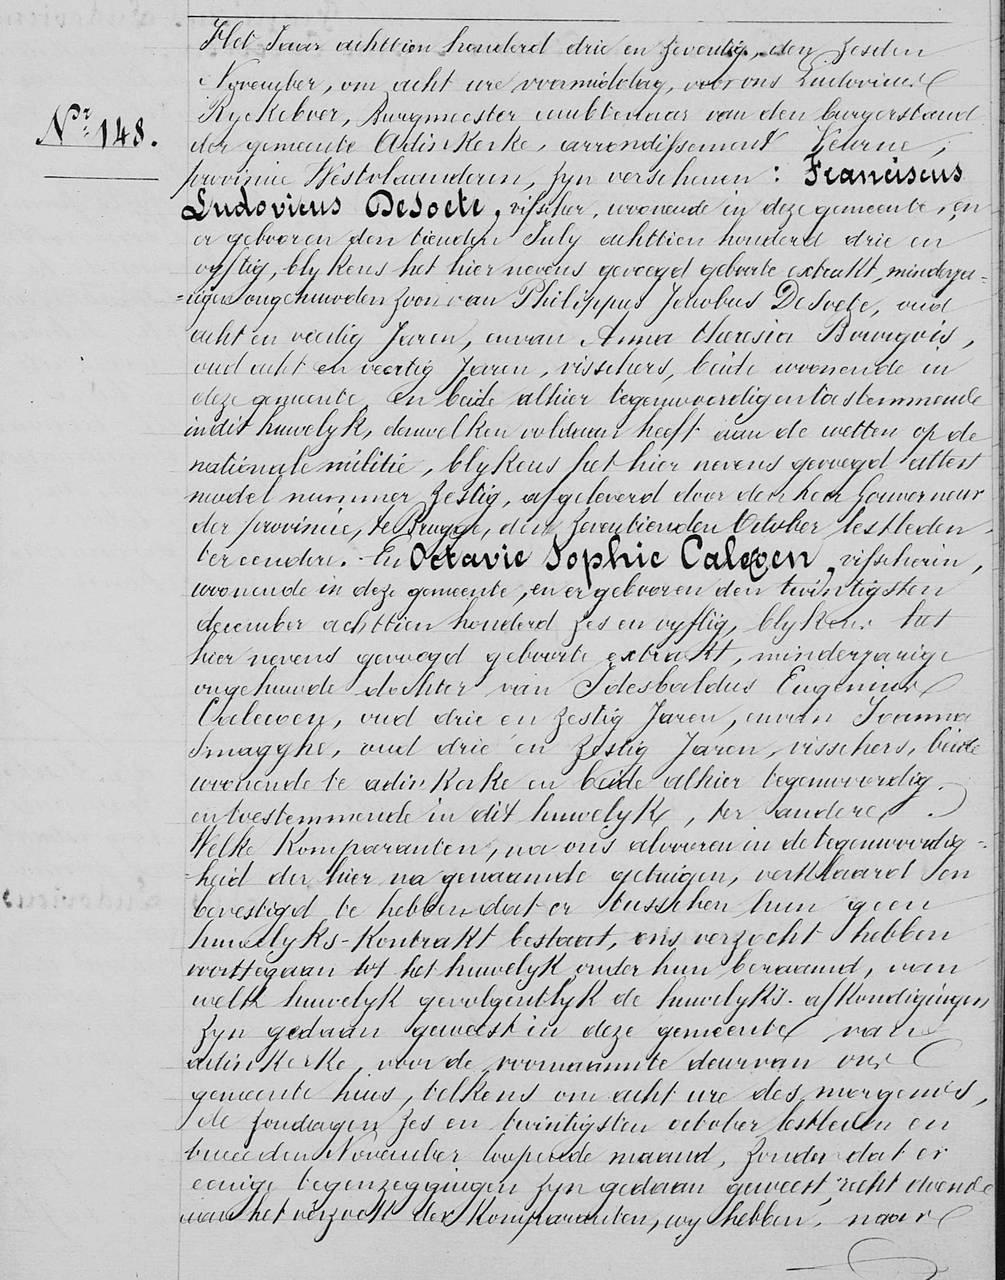 Het Jaar achttien honderd drie en zeventig, den zesden
November, om acht ure voormiddag, voor ons Ludovicus
Ryckeboer, Burgmeester ambtenaar van den burgerstand
der gemeente Adinkerke, arrondissement Veurne,
provincie Westvlaanderen, zyn verschenen : Franciscus
Ludovicus DeSoete, visscher, wonende in deze gemeente, en
er gebooren den tienden July achttien honderd drie en
vyftig, blykens het hier nevens gevoegd geboorte extrakt, minderja-
=rigen ongehuwden zoon van Philippus Jacobus DeSoete, oud
acht en veertig Jaren, en van Anna theresia Bourgois,
oud acht en veertig Jaren, visschers, beide woonende in
deze gemeente, en beide alhier tegenwoordig en toestemmende
in dit huwelyk, denwelken voldaan heeft aan de wetten op de
nationale militie, blykens het hier nevens gevoegd attest
model nummer zestig, afgeleverd door den heer Gouverneur
der provincie, te Brugge, den zeventienden October lestleden
ter eendere. En Octavie Sophie Calcoen, visscherin,
woonende in deze gemeente, en er gebooren den twintigsten
december achttien honderd zes en vyftig, blykens het
hier nevens gevoegd geboorte extrakt, minderjarige
ongehuwde dochter van Idesbaldus Eugenius
Calcoen, oud drie en zestig Jaren, en van Joanna
Smagghe, oud drie en zestig Jaren, visschers, beide
woonende te adinkerke en beide alhier tegenwoordig
en toestemmende in dit huwelyk, ter andere.
Welke Komparanten, na ons alvooren in de tegenwoordig=
=heid der hier na genaamde getuigen, verklaard en
bevestigd te hebben dat er tusschen hun geen
huwelyks-Kontrakt bestaat, ons verzocht hebben
voorttegaan tot het huwelyk onder hun beraamd, van
welk huwelyk gevolgentlyk de huwelyks-afkondigingen
zyn gedaan geweest in deze gemeente van
adinkerke, voor de voornaamste deur van ons
gemeente huis, telkens om acht ure des morgends,
de zondagen zes en twintigsten october lestleden en
tweeden November loopende maand, zonder dat er
eenige tegenzeggingen zyn gedaan geweest, recht doende
aan het verzoek der Komparanten, wy hebben, naar
Nr 148.